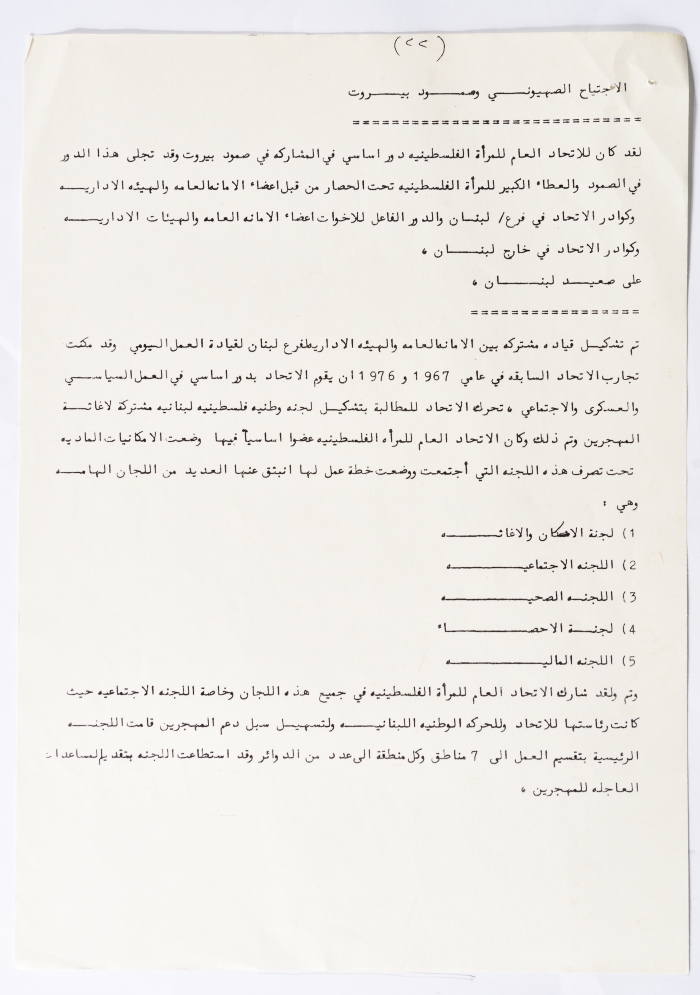 (٢٢)
الاجتياح الصهيونـــي وصمـــود بيـــروت
============================
لقد كان للاتحاد العام للمرأة الفلسطينيه دور اساسي في المشاركه في صمود بيروت وقد تجلى هذا الدور
في الصمود والعطاء الكبير للمرأة الفلسطينيه تحت الحصار من قبل اعضاء الامانهالعامه والهيئه الاداريـــه
وكوادر الاتحاد في فرع/ لبنـان والدور الفاعل للاخوات اعضاء الامانه العامه والهيئات الاداريـــه
وكوادر الاتحاد في خارج لبنـــان ،
على صعيـــد لبنـــان ،
================
تم تشكيـل قياده مشتركه بين الامانهالعامه والهيئه الاداريهلفرع لبنان لقيادة العمل اليومي وقد مكنت
تجارب الاتحاد السابقه في عامي 1967 و 1976 ان يقوم الاتحاد بدور اساسي في العمل السياسـي
والعسكرى والاجتماعي ، تحرك الاتحاد للمطالبة بتشكيـل لجنه وطنيه فلسطينيه لبنانيه مشتركة لاغاثـــة
المهجرين وتم ذلك وكان الاتحاد العام للمرأه الفلسطينيه عضوا اساسياً فيها وضعت الامكانيات الماديه
تحت تصرف هذه اللجنه التي أجتمعت ووضعت خطة عمل لها انبثق عنها العديد من اللجان الهامـــه
وهي :
1) لجنة الاسكان والاغاثـــــه
2) اللجنه الاجتماعيـــــه
3) اللجنـه الصحيـــــه
4) لجنــة الاحصـــــاء
5) اللجنه الماليـــــه
وتم ولقد شارك الاتحاد العام للمرأة الفلسطينيه في جميع هذه اللجان وخاصة اللجنه الاجتماعيه حيث
كانت رئاستها للاتحاد وللحركه الوطنيه اللبنانيـــه ولتسهيـل سبل دعم المهجرين قامت اللجنـــه
الرئيسية بتقسيم العمل الى 7 مناطق وكل منطقة الى عدد من الدوائر وقد استطاعت اللجنه بتقديم المساعدات
العاجله للمهجرين ،